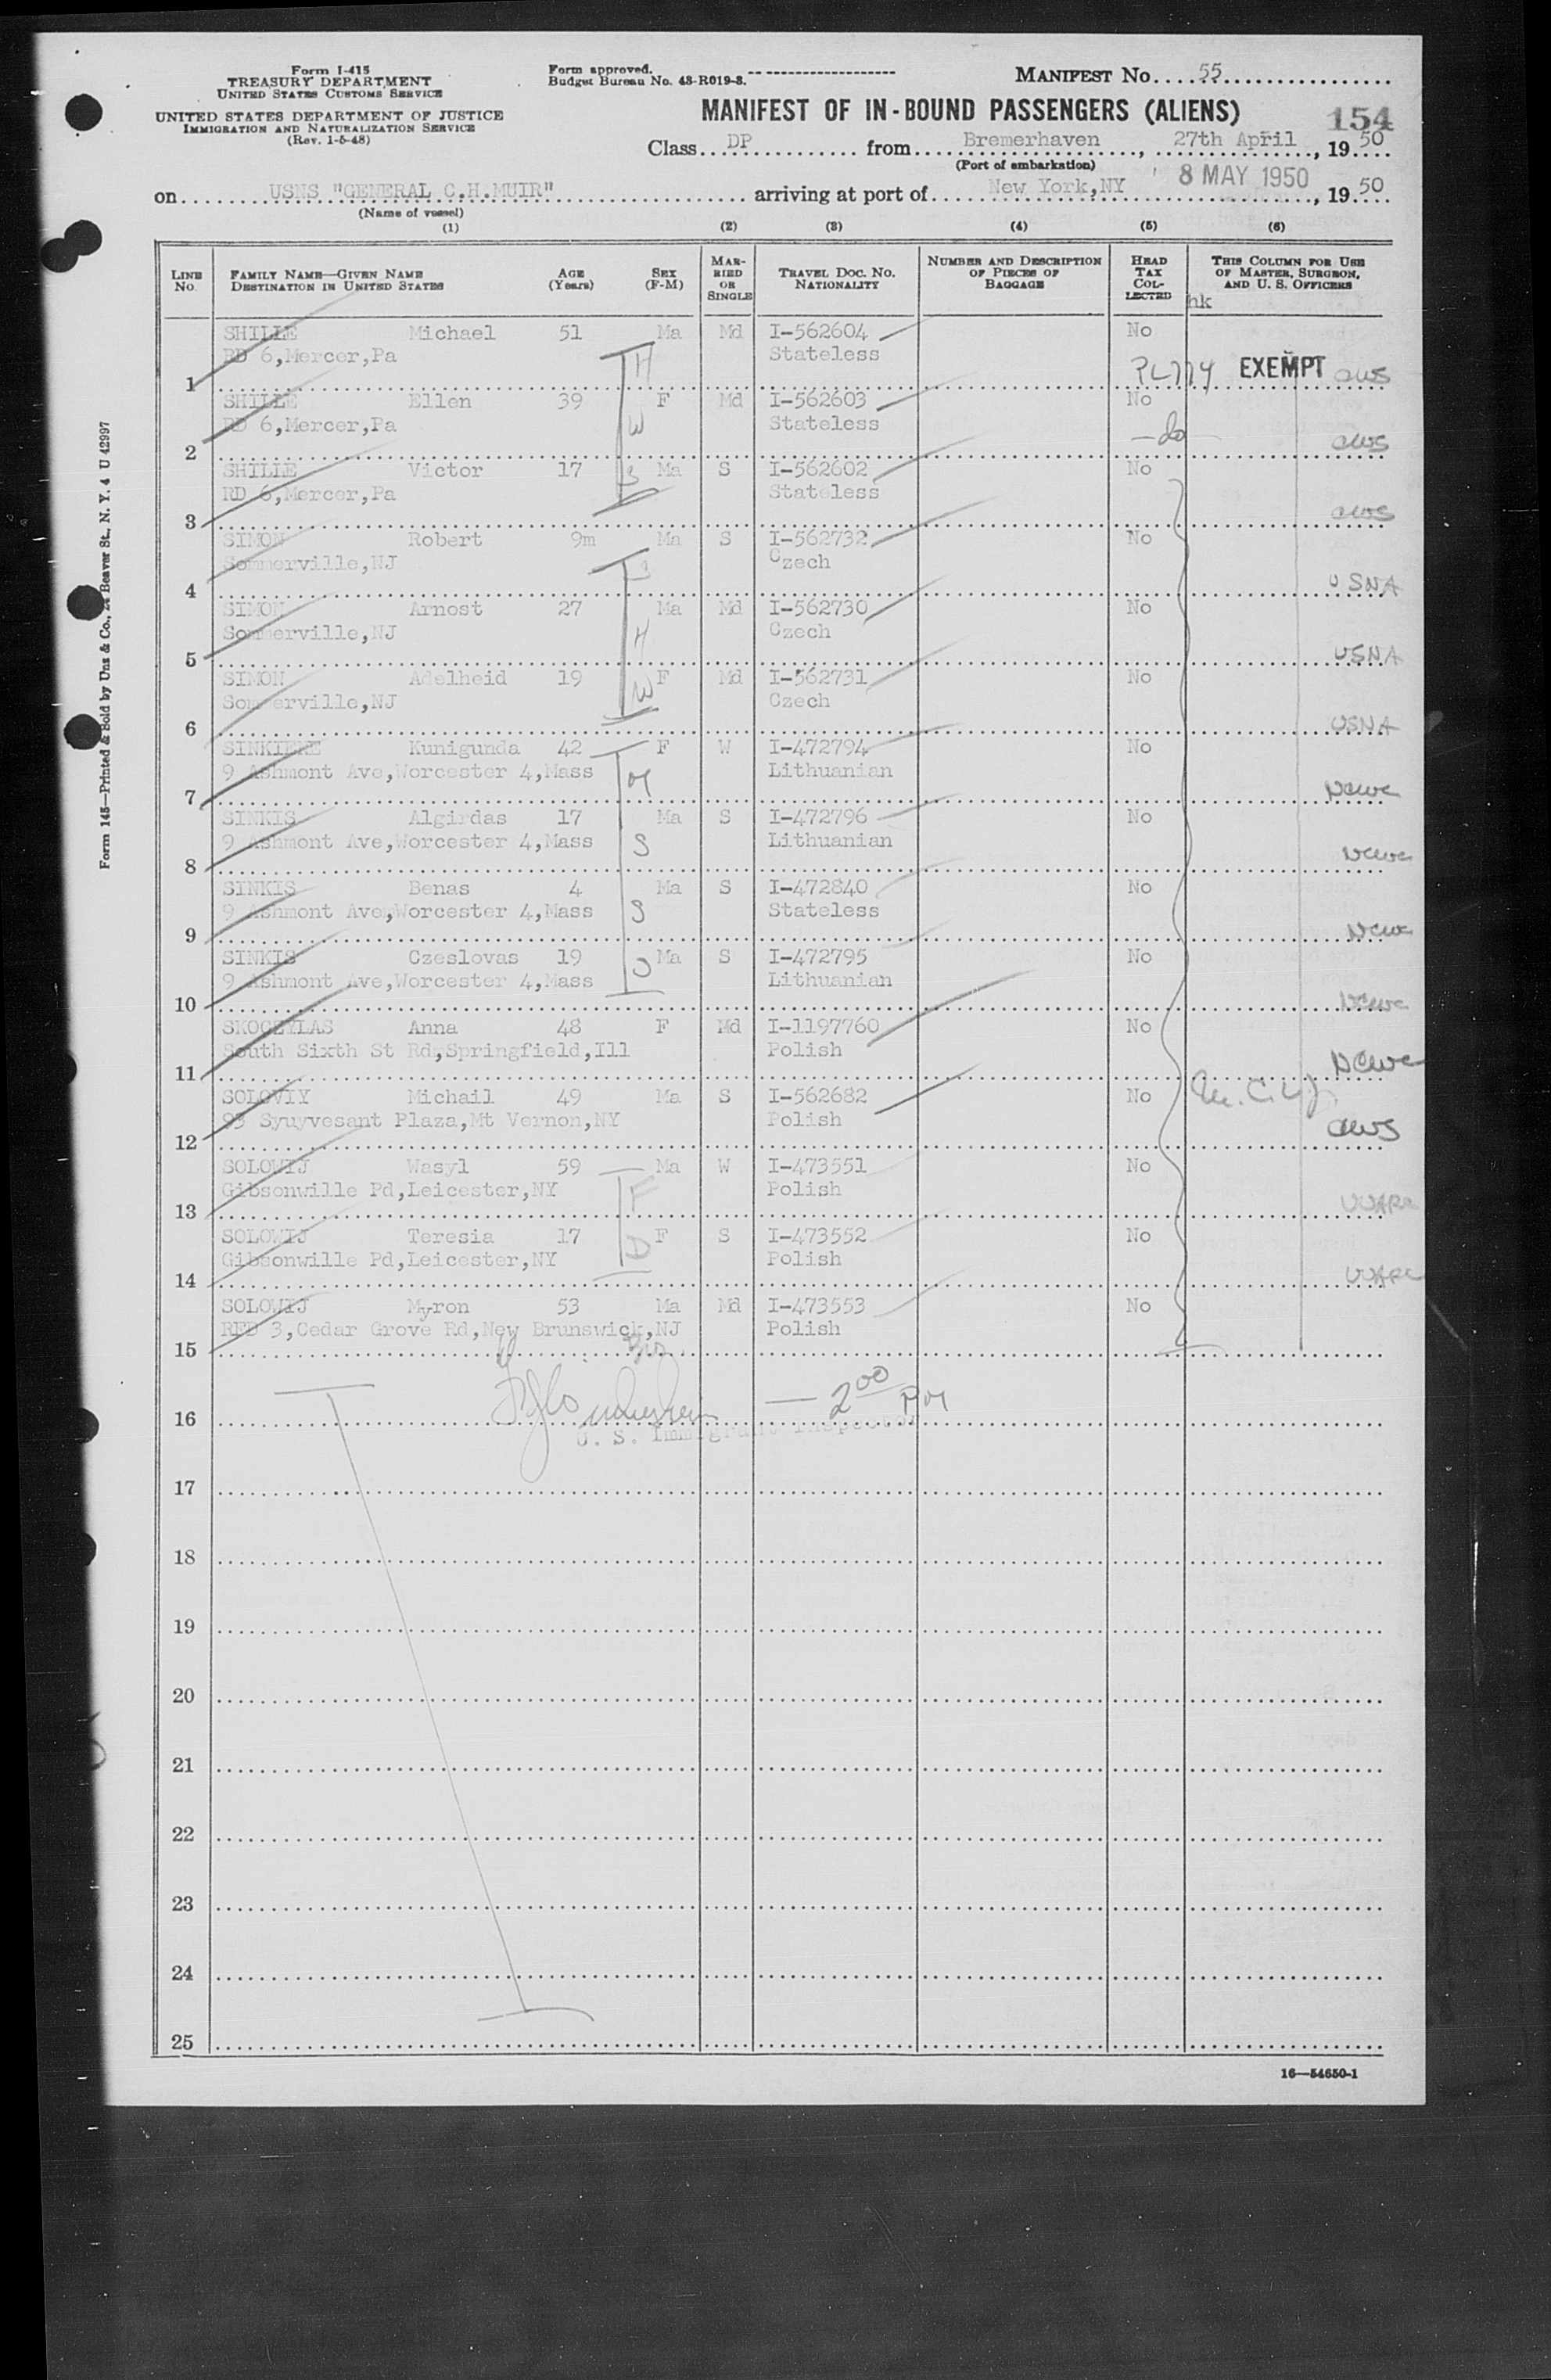 Form I-415
TREASURY DEPARTMENT
UNITED STATES CUSTOMS SERVICE
UNITED STATES DEPARTMENT OF JUSTICE
IMMIGRATION AND NATURALIZATION SERVICE
(Rev. 1-5-48)
Form approved.
Budget Bureau No. 43-R019-3.
MANIFEST No. 55
MANIFEST OF IN-BOUND PASSENGERS (ALIENS)
154
Class DP from Bremerhaven, 27th April, 1950
(Port of embarkation)
on USNS "GENERAL C.H.MUIR" arriving at port of New York,NY 8 MAY 1950, 1950
(Name of vessel)
(1) (2) (3) (4) (5) (6)
LINE No. FAMILY NAME—GIVEN NAME DESTINATION IN UNITED STATES AGE (Years) SEX (F-M) MARRIED OR SINGLE TRAVEL DOC. NO. NATIONALITY NUMBER AND DESCRIPTION OF PIECES OF BAGGAGE HEAD TAX COLLECTED THIS COLUMN FOR USE OF MASTER, SURGEON, AND U. S. OFFICERS
hk
SHILLE Michael 51 Ma Md I-562604 No
RD 6,Mercer,Pa H Stateless
1 PL774 EXEMPT cws
SHILLE Ellen 39 F Md I-562603 No
RD 6,Mercer,Pa W Stateless
2 —do— cws
SHILLE Victor 17 S Ma S I-562602 No
RD 6,Mercer,Pa Stateless
3 cws
SIMON Robert 9m Ma S I-562732 No
Sommerville,NJ S Czech
4 USNA
SIMON Arnost 27 Ma Md I-562730 No
Sommerville,NJ H Czech
5 USNA
SIMON Adelheid 19 F Md I-562731 No
Sommerville,NJ W Czech
6 USNA
SINKIENE Kunigunda 42 F W I-472794 No
9 Ashmont Ave,Worcester 4,Mass M Lithuanian
7 NCWC
SINKIS Algirdas 17 Ma S I-472796 No
9 Ashmont Ave,Worcester 4,Mass S Lithuanian
8 NCWC
SINKIS Benas 4 Ma S I-472840 No
9 Ashmont Ave,Worcester 4,Mass S Stateless
9 NCWC
SINKIS Czeslovas 19 S Ma S I-472795 No
9 Ashmont Ave,Worcester 4,Mass Lithuanian
10 NCWC
SKOCZYLAS Anna 48 F Md I-1197760 No
South Sixth St Rd,Springfield,Ill Polish
11 NCWC
SOLOVIY Michail 49 Ma S I-562682 No
93 Syuyvesant Plaza,Mt Vernon,NY Polish
12 cws
SOLOWIJ Wasyl 59 Ma W I-473551 No
Gibsonville Pd,Leicester,NY F Polish
13 UUARC
SOLOWIJ Teresia 17 D F S I-473552 No
Gibsonville Pd,Leicester,NY Polish
14 UUARC
SOLOWIJ Myron 53 Ma Md I-473553 No
RFD 3,Cedar Grove Rd,New Brunswick,NJ Polish
15
— 2 00
16
U. S. Immigrant Inspector
17
18
19
20
21
22
23
24
25
16—54650-1
Form 145—Printed & Sold by Unz & Co., 24 Beaver St., N. Y. 4 U 42997